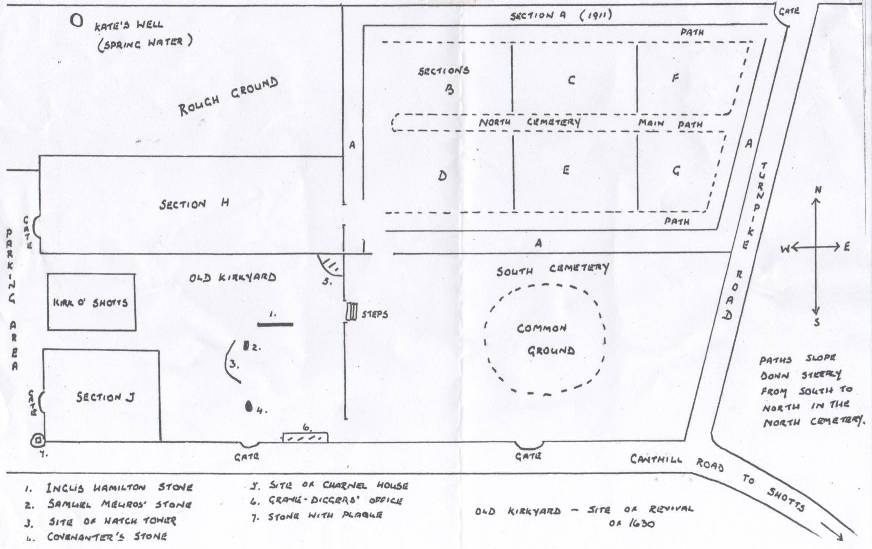 SECTION A (1911)
GATE
KATE'S WELL
(SPRING WATER)
PATH
ROUGH GROUND
SECTIONS
B
C
F
NORTH CEMETERY MAIN PATH
A
D
E
G
A
TURNPIKE ROAD
SECTION H
PATH
A
N
W
E
S
GATE
PARKING AREA
OLD KIRKYARD
5.
SOUTH CEMETERY
KIRK O' SHOTTS
1.
STEPS
2.
3.
COMMON
GROUND
PATHS SLOPE
DOWN STEEPLY
FROM SOUTH TO
NORTH IN THE
NORTH CEMETERY.
GATE
SECTION J
4.
6.
7.
GATE
GATE
CANTHILL ROAD TO SHOTTS
1. INGLIS HAMILTON STONE
2. SAMUEL MELROS' STONE
3. SITE OF WATCH TOWER
4. COVENANTER'S STONE
5. SITE OF CHARNEL HOUSE
6. GRAVE-DIGGERS' OFFICE
7. STONE WITH PLAQUE
OLD KIRKYARD - SITE OF REVIVAL
OF 1630